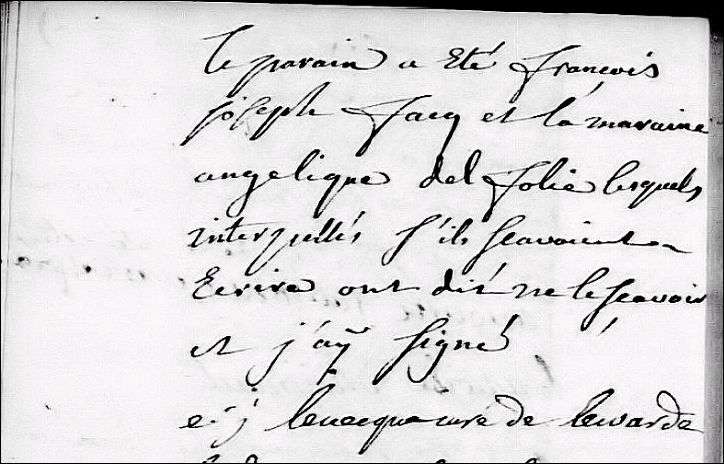 le parain a Eté francois
joseph Jacq et la maraine
angelique del folie lesquels
interpellés s'ils scavoient
Ecrire ont dit ne le scavoir
et j'aÿ signé
curé de lewarde